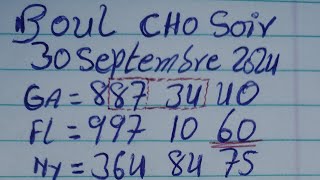 Boul CHO Soir
30 Septembre 2024
GA = 887 34 40
FL = 997 10 60
NY = 364 84 75